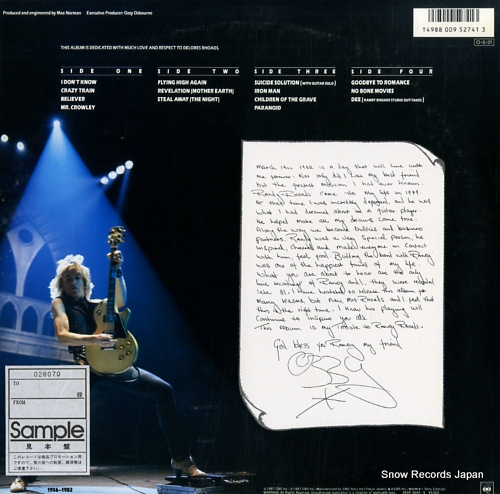 Produced and engineered by Max Norman Executive Producer: Ozzy Osbourne
THIS ALBUM IS DEDICATED WITH MUCH LOVE AND RESPECT TO DELORES RHOADS.
T4988 009 52741 3
O-5-21
SIDE ONE
I DON'T KNOW
CRAZY TRAIN
BELIEVER
MR. CROWLEY
SIDE TWO
FLYING HIGH AGAIN
REVELATION (MOTHER EARTH)
STEAL AWAY (THE NIGHT)
SIDE THREE
SUICIDE SOLUTION (WITH GUITAR SOLO)
IRON MAN
CHILDREN OF THE GRAVE
PARANOID
SIDE FOUR
GOODBYE TO ROMANCE
NO BONE MOVIES
DEE (RANDY RHOADS STUDIO OUT TAKE)
March 19th 1982 is a day that will live with
me forever. Not only did I lose my best friend
but the greatest musician I had ever known.
Randy Rhoads came into my life in 1979.
At that time I was incredibly depressed, and he was
what I had dreamed about as a guitar player.
He helped make all my dreams come true.
Along the way we became buddies and business
partners. Randy was a very special person, he
inspired, cheered and made everyone in contact
with him, feel good. Building the band with Randy
was one of the happiest times of my life.
What you are about to hear are the only
live recordings of Randy and I, they were recorded
late 81. I have wanted to release this album for
many reasons. but now, Mrs Rhoads and I feel that
this is the right time. I know his playing will
continue to inspire you all.
This album is my Tribute to Randy Rhoads.
God bless ya Randy my friend
Ozzy
028070
TO
様
FROM
Sample
見本盤
このレコードは部品プロモーション用
ご注意下さい。
1956-1982
Snow Records Japan